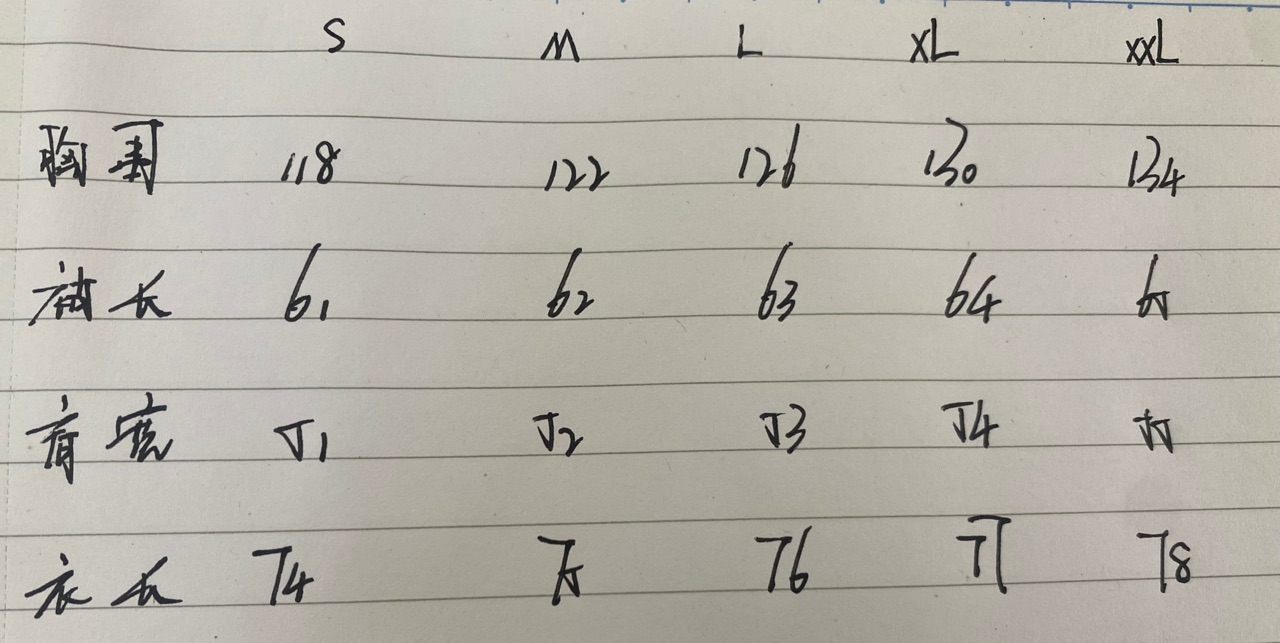 S M L XL XXL
胸围 118 122 126 130 134
袖长 61 62 63 64 65
肩宽 51 52 53 54 55
衣长 74 75 76 77 78